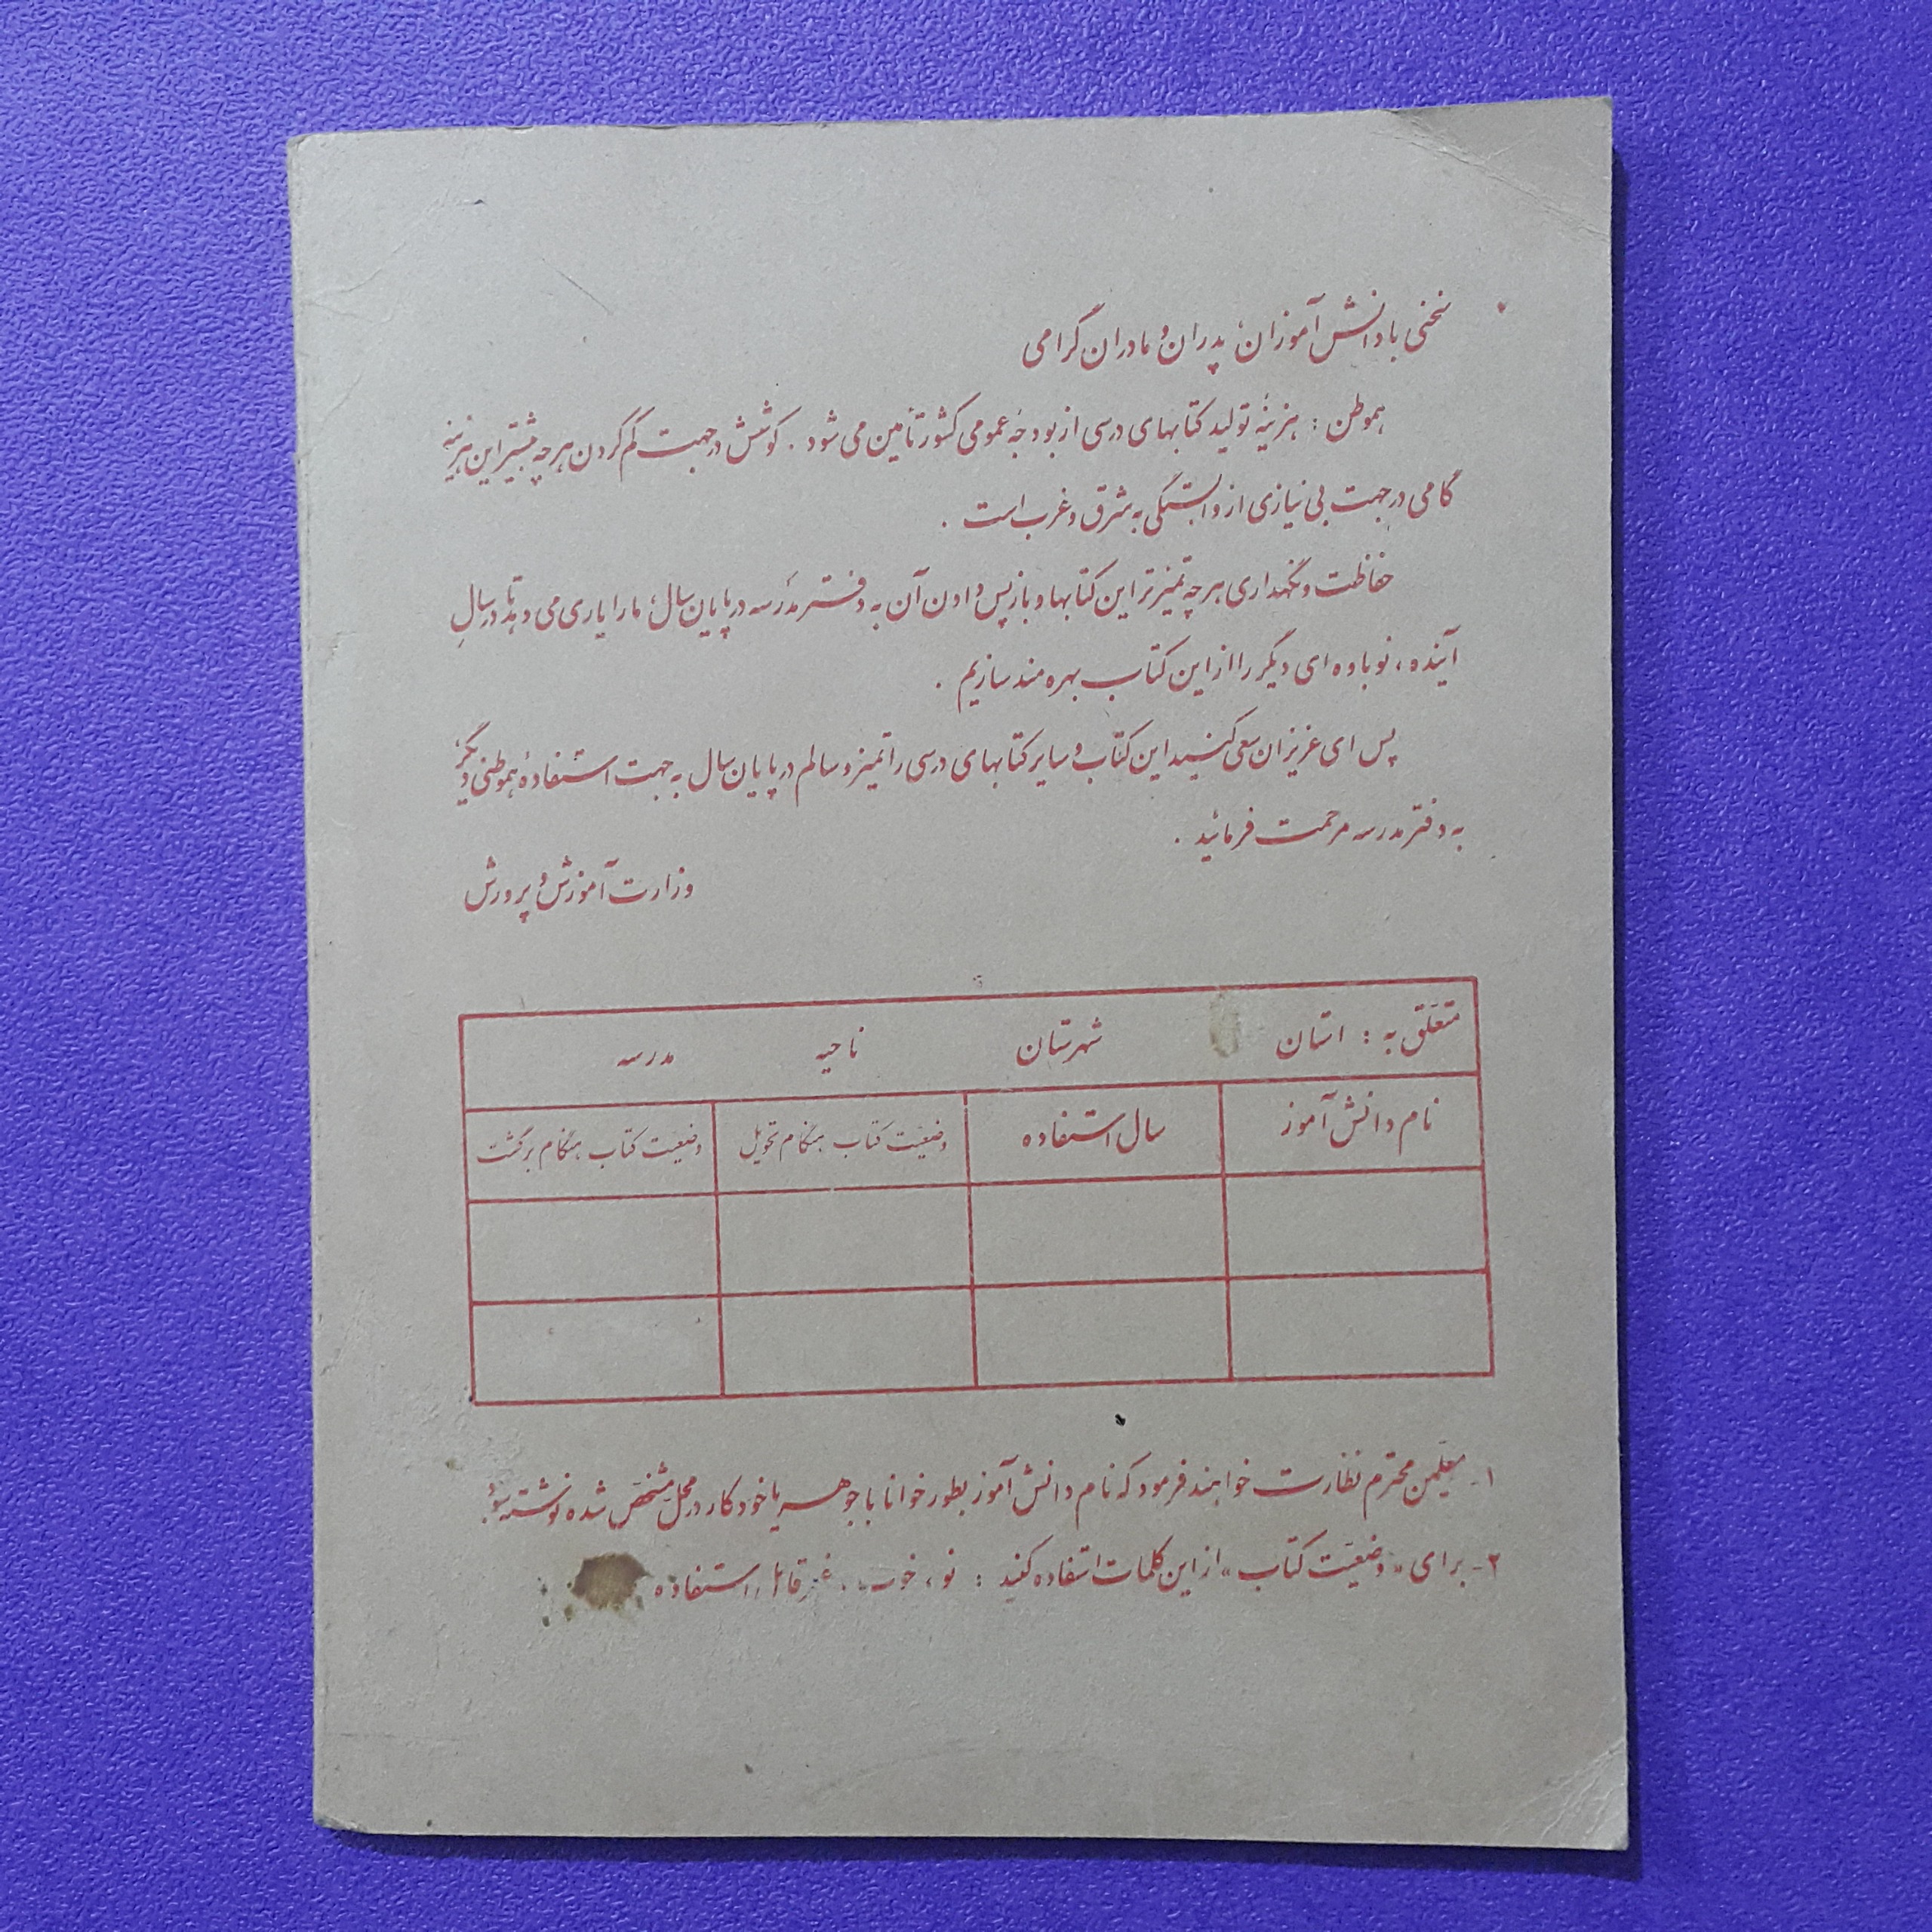 سخنی با دانش‌آموزان، پدران و مادران گرامی
هموطن : هزینهٔ تولید کتابهای درسی از بودجهٔ عمومی کشور تأمین می‌شود . کوشش در جهت کم کردن هرچه بیشتر این هزینه
گامی در جهت بی‌نیازی از وابستگی به شرق و غرب است .
حفاظت و نگهداری هرچه تمیزتر این کتابها و بازپس دادن آن به دفتر مدرسه در پایان سال، ما را یاری می‌دهد تا در سالِ
آینده ، نوباوه‌ای دیگر را از این کتاب بهره‌مند سازیم .
پس ای عزیزان سعی کنید این کتاب و سایر کتابهای درسی را تمیز و سالم در پایان سال به جهت استفادهٔ هموطنی دیگر،
به دفتر مدرسه مرحمت فرمائید .
وزارت آموزش و پرورش
متعلّق به : استان شهرستان ناحیه مدرسه
نام دانش‌آموز سال استفاده وضعیّت کتاب هنگام تحویل وضعیّت کتاب هنگام برگشت
۱- معلّمین محترم نظارت خواهند فرمود که نام دانش‌آموز بطور خوانا با جوهر یا خودکار در محلّ مشخّص شده نوشته شود.
۲- برای «وضعیّت کتاب» از این کلمات استفاده کنید : نو ، خوب ، غیرقابل استفاده